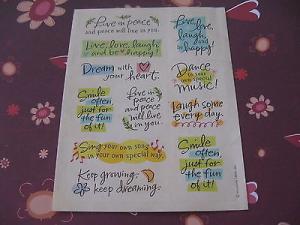 Live in peace
and peace will live in you.
Live, love, laugh,
and be happy!
Live, love, laugh, and be happy!
Dream with
your heart.
Dance
to your own
special
music!
Smile
often,
just for
the fun
of it!
Live in
peace
and peace
will live
in you.
Laugh some
every day.
Sing your own song
in your own special way.
Smile
often,
just for
the fun
of it!
Keep growing,
keep dreaming.